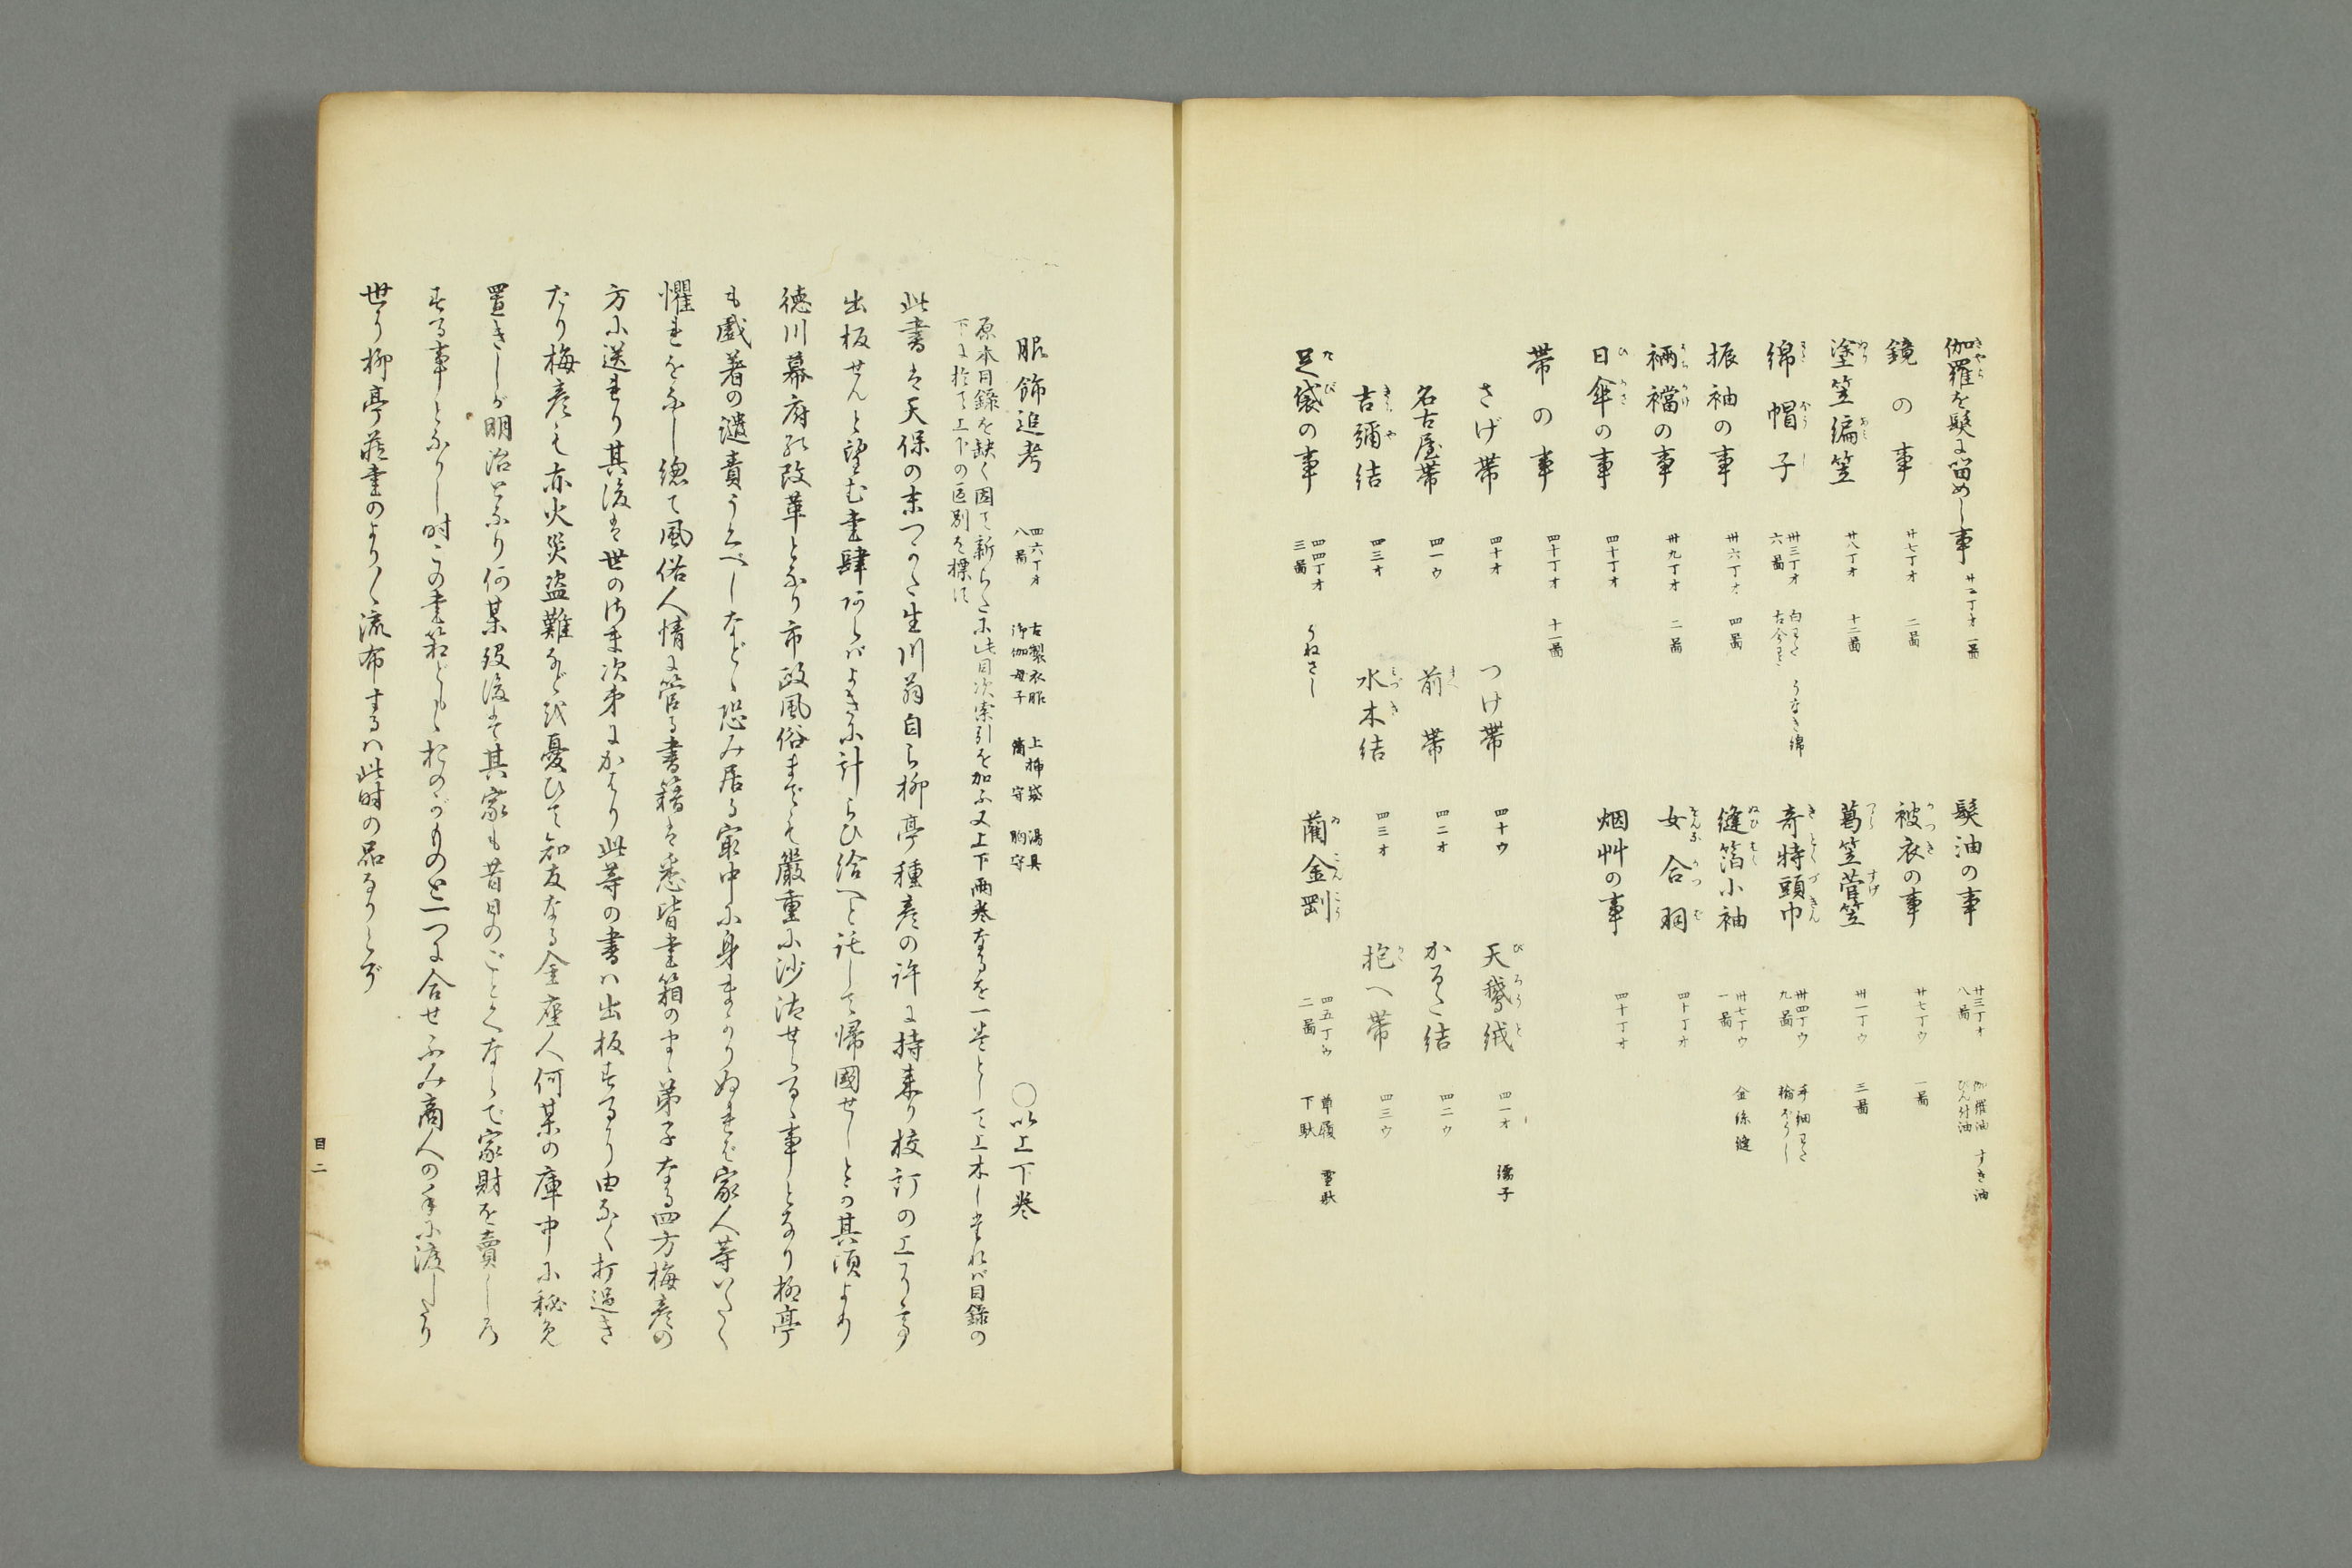 伽羅を髪に留めし事 廿二丁オ 一圖
髪油の事 廿三丁オ 八圖 伽羅油 すき油 びん付油
鏡の事 廿七丁オ 二圖
被衣の事 廿七丁ウ 一圖
塗笠編笠 廿八丁オ 十二圖
葛笠菅笠 卅一丁ウ 三圖
綿帽子 卅三丁オ 六圖 うなき綿
奇特頭巾 卅四丁ウ 九圖
振袖の事 卅六丁オ 四圖
縫箔小袖 卅七丁ウ 一圖 金絲縫
裲襠の事 卅九丁オ 二圖
女合羽 四十丁オ
日傘の事 四十丁オ
烟艸の事 四十丁オ
帯の事 四十丁オ 十一圖
さげ帯 四十オ
つけ帯 四十ウ
天鵞絨 四一オ 繻子
名古屋帯 四一ウ
前帯 四二オ
かるた結 四二ウ
吉彌結 四三オ
水木結 四三オ
抱へ帯 四三ウ
足袋の事 四四丁オ 三圖 うねさし
藺金剛 四五丁ウ 二圖 草履 雪駄 下駄
服飾追考 四六丁オ 八圖 古製衣服 御伽母子 上挿袋 筒守 湯具 胸守
○以上下巻
原本目錄を缺く因て新らたに此目次索引を加ふ又上下兩巻なるを一巻として上木しあれば目錄の
下に於て上下の區別を標す
此書は天保の末つかた生川翁自ら柳亭種彦の許に持来り校訂の上
出板せんと望む書肆あらばよきに計らひ給へと託して帰國せしとか其頃より
徳川幕府の改革となり市政風俗までも嚴重に沙汰せらるゝ事となり柳亭
も戯著の譴責うくべしなどゝ恐み居る最中に身まかりぬれば家人等いたく
懼れをなし總て風俗人情に管る書籍は悉皆書箱のまゝ弟子なる四方梅彦の
方に送れり其後は世のさま次第にかはり此等の書ハ出板する由なく打過き
たり梅彦も亦火災盗難などを憂ひて知友なる金座人何某の庫中に秘め
置きしが明治となり何某歿後は其家も昔日のごとくならで家財を賣しろ
する事となりし時この書箱どもゝおのがものと一つに合せふみ商人の手に渡したり
世に柳亭蔵書のより〳〵流布するハ此時の品なりとぞ
目二